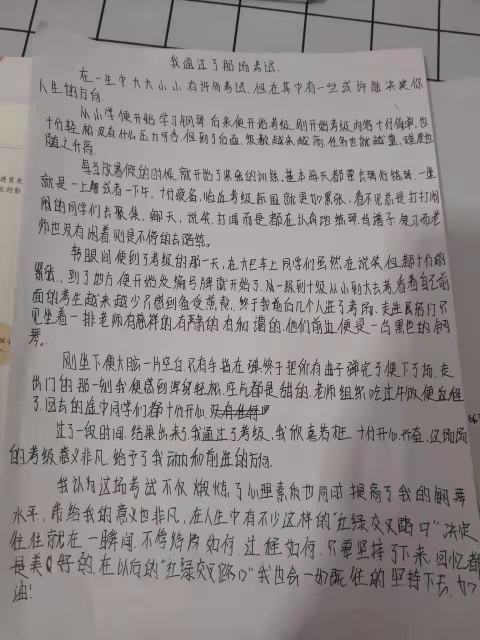 我通过了那场考试
在一生中大大小小有许多考试,但在其中有一些或许能决定你
人生的方向.
从小学便开始学习钢琴,后来便开始考级,刚开始考级内容十分简单,也
十分轻松没有什么压力可言,但到了后面,级数越来越高,任务也就越重,难度也
随之升高.
每当放暑假的时候,就开始了紧张的训练,基本每天都要去琴行练琴,一坐
就是一上午或者一下午,十分疲惫,临近考级氛围就更加紧张,看不见前是打打闹
闹的同学们去聚集、聊天,说笑、打闹而是都在认真地练琴,
师也没有闲着则是不停的去踏练.
转眼间便到了考级的那一天,在大巴车上同学们虽然在说笑,但都十分的
紧张,到了地方便开始发编号牌就开始了,从一级到十级从小到大去考,看着自己前
面的考生越来越少,只感到备受煎熬,终于我通过几个人进了考场,走进房间门只
见坐着一排老师有慈祥的有严肃的有和谐的,他们前边便是一台黑色的钢
琴。
刚坐下便大脑一片空白只有手指在弹,终于把所有曲子弹完了便下了场,走
出门的那一刻我便感到浑身轻松,空气都是甜的,老师组织吃过午饭便返程
了,回去的途中同学们都十分开心,
过了一段时间,结果出来了,我通过了考级,我欣喜若狂,十分开心,所以,这场场
的考级意义非凡,给予了我动力和前进的方向.
我认为这场考试不仅煅炼了心理素质也同时提高了我的钢琴
水平,带给我的意义也非凡,在人生中有不少这样的“红绿交叉路口”决定
往往就在一瞬间,不停结局如何,过程如何,只要坚持了下来,回忆都
是美好的,在以后的“红绿交叉路口”我也会一如既往的坚持下去,加
油!